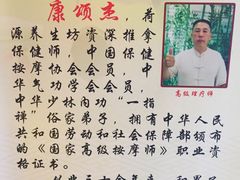 康颂杰,荷
源养生坊资深推拿
师,中国保健
按摩师协会会员,
中华气功学会会员,
中华少林内功“一指
禅”俗家弟子,拥有中华人民
共和国劳动和社会保障部颁布
的《国家高级按摩师》职业资
格证书。
高级理疗师